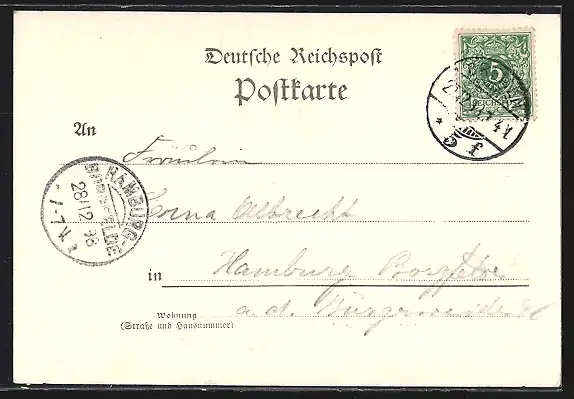 Deutsche Reichspost
Postkarte
5
An
Fräulein
5 f
HAMBURG-
BORGFELDE
28/12 96
7-7 N
Erna Albrecht
in Hamburg Borgfelde
a. d. Bürgerweide
Wohnung
(Straße und Hausnummer)